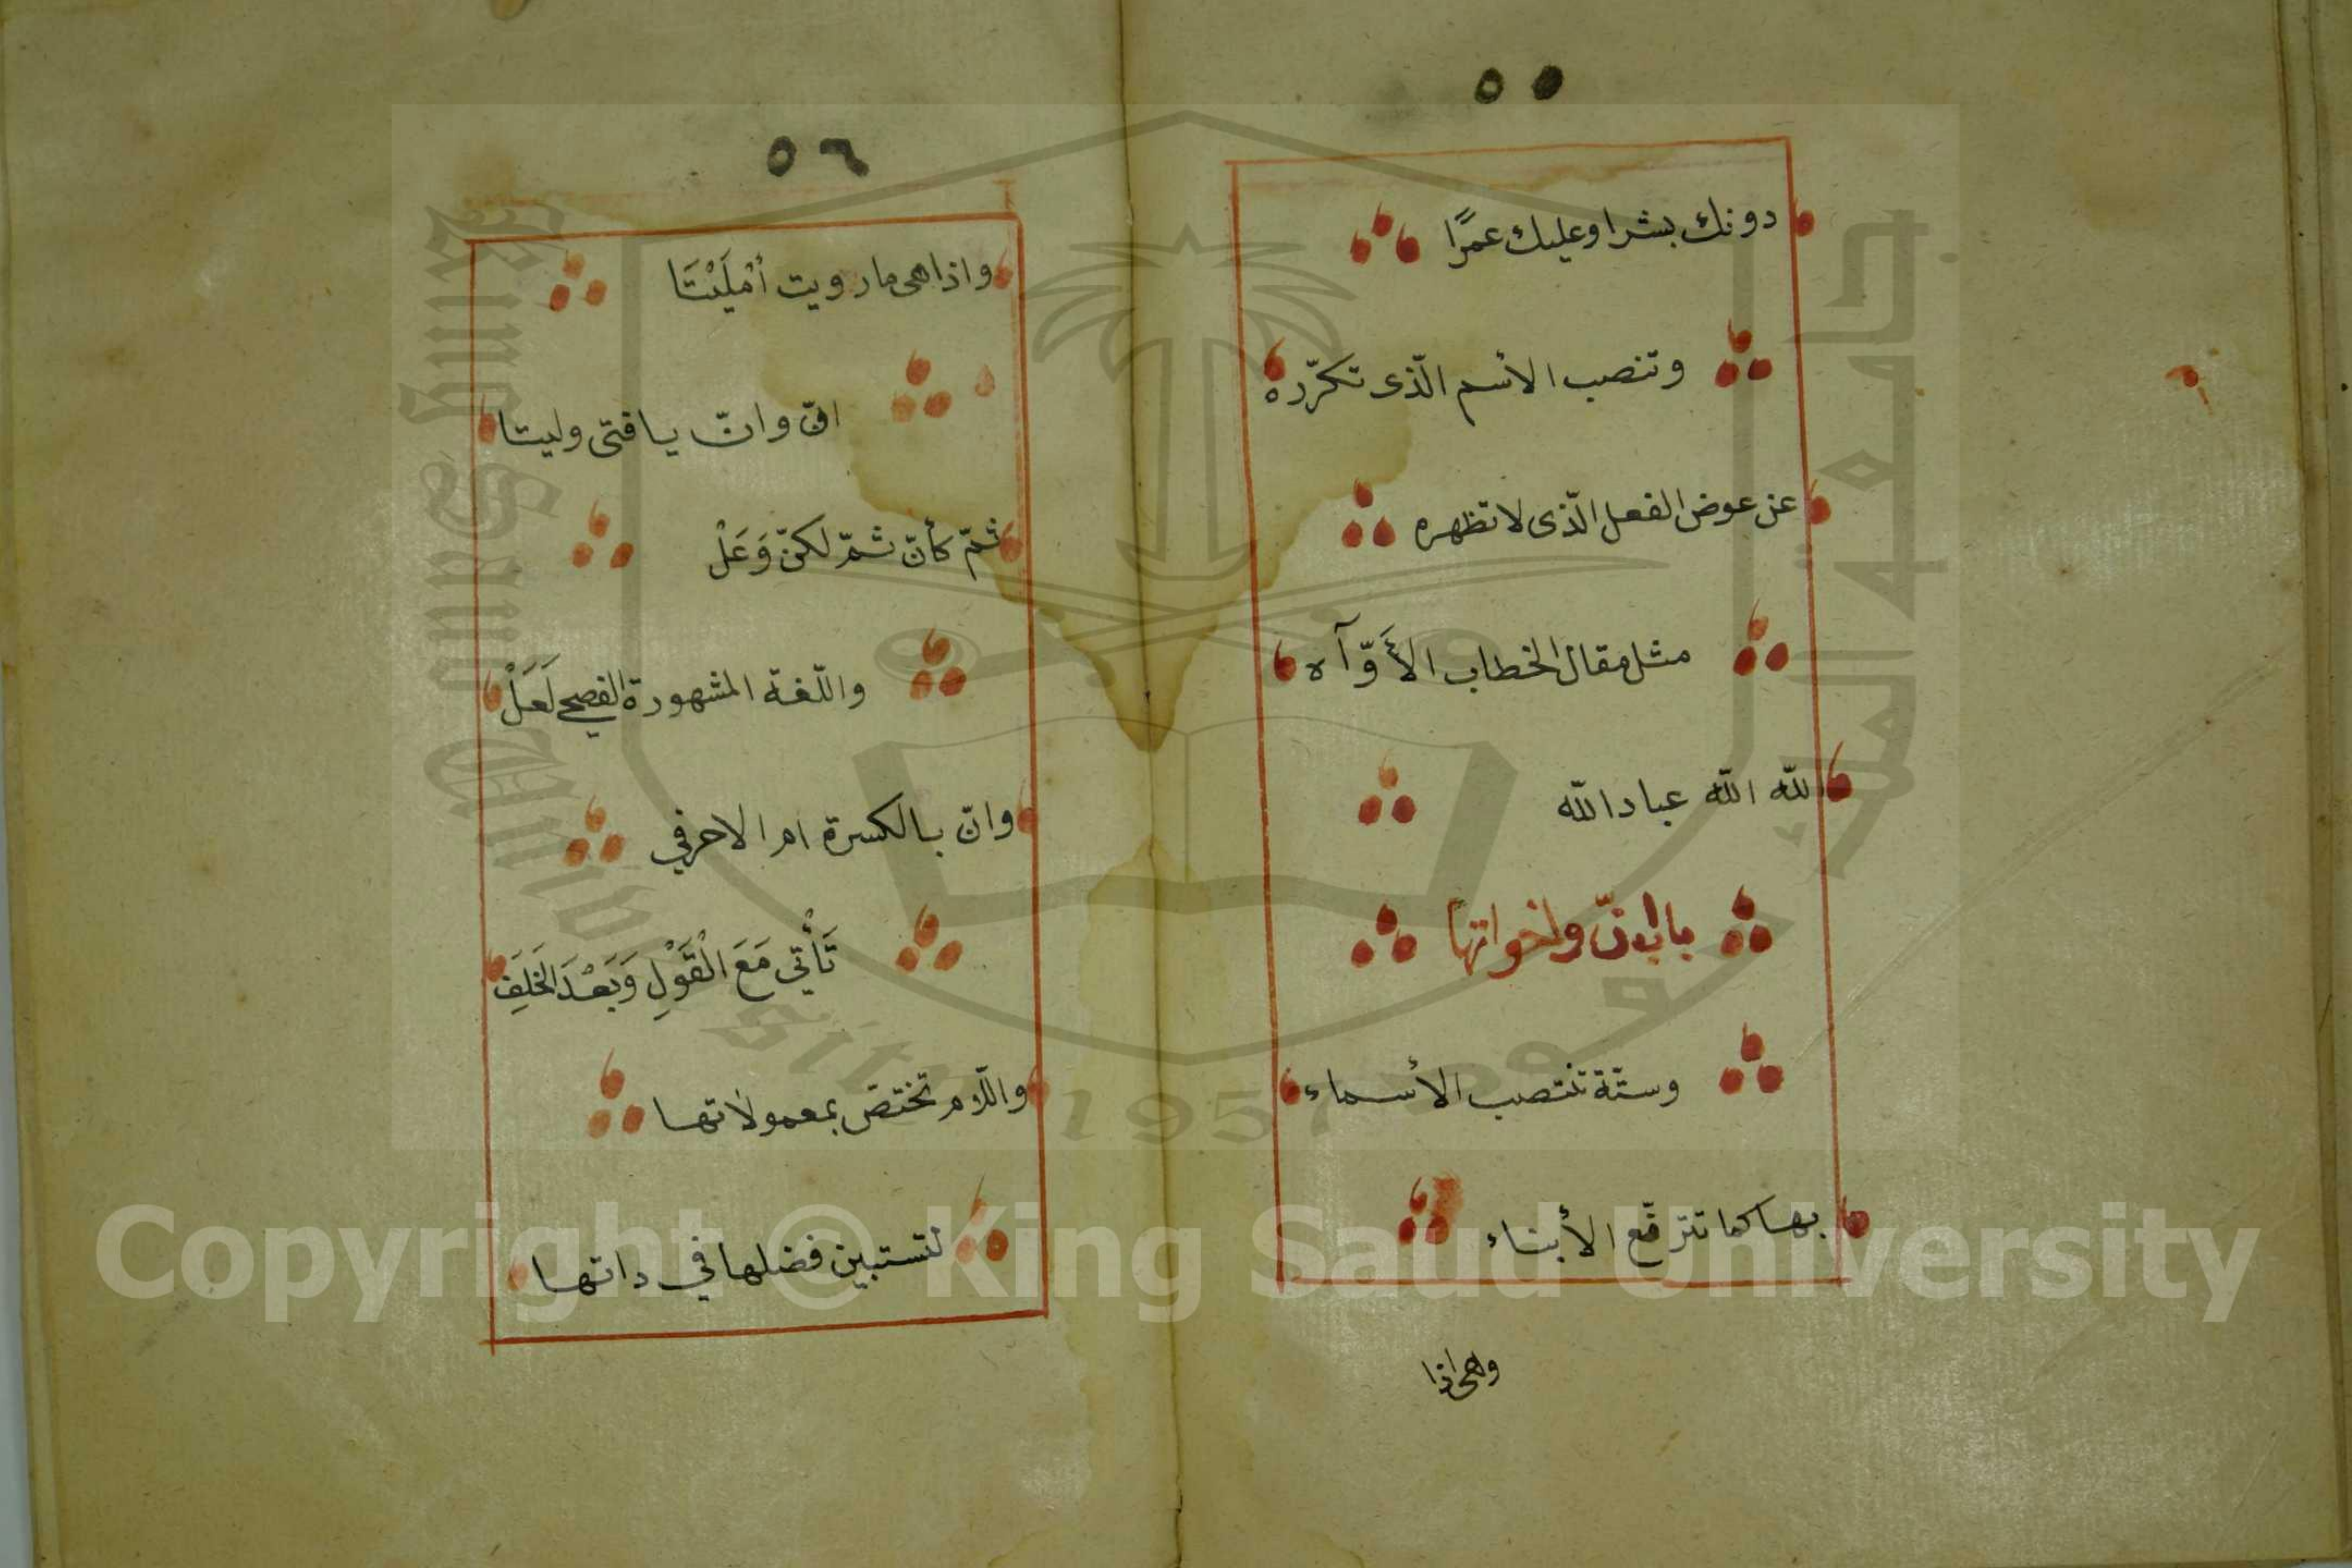 ٥٥
دونك بشرا وعليك عمرًا
وتنصب الأسم الّذى تكرّره
عن عوض الفعل الّذى لا تظهره
مثل مقال الخطاب الأَوّآه
الله الله عباد الله
باب انّ واخواتها
وستّة تنتصب الأسماء
بها كما تترفّع الأبناء
وهى اذا
٥٦
واذا هى مار ويت أمْلَيْتَا
انّ وانّ يا فتى وليتا
ثمّ كأنّ ثمّ لكنّ وَعَلْ
واللّغة المشهورة الفصحى لَعَلْ
وانّ بالكسرة ام الاحرفي
تَأْتي مَعَ الْقَوْلِ وَبَعْدَ الخَلِفَ
واللّام تختصّ بمعمولاتها
لتستبين فضلها في ذاتها
جامعة الملك سعود
King Saud University
1957
Copyright © King Saud University